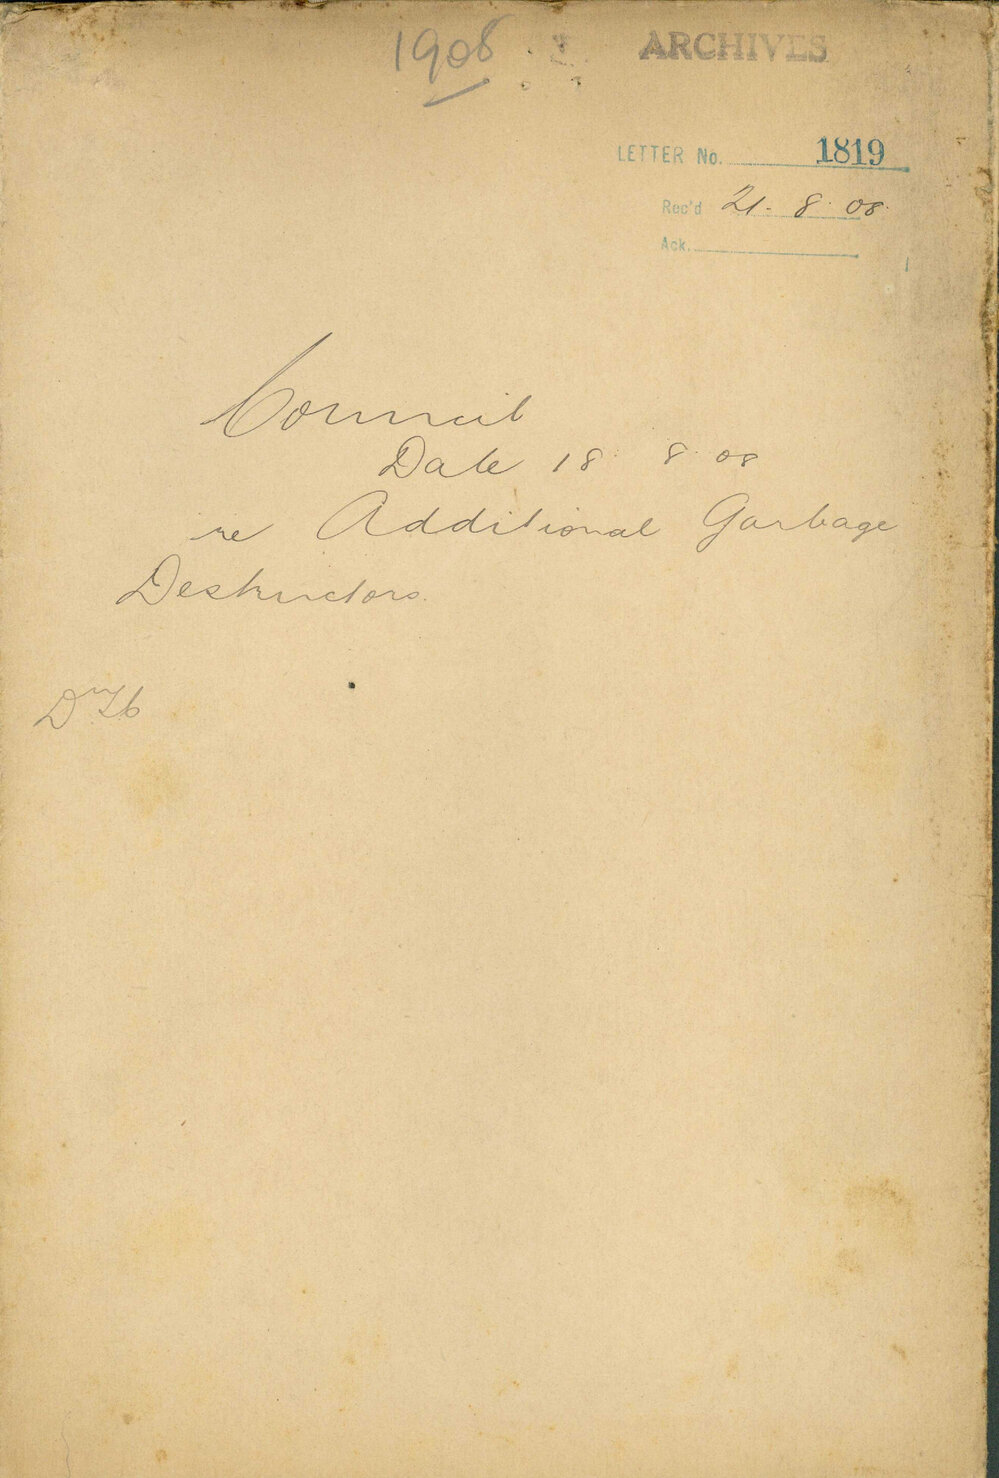 1908
ARCHIVES
LETTER No. 1819
Rec'd 21. 8. 08.
Ack.
Council
Date 18. 8. 08
re Additional Garbage
Destructors.